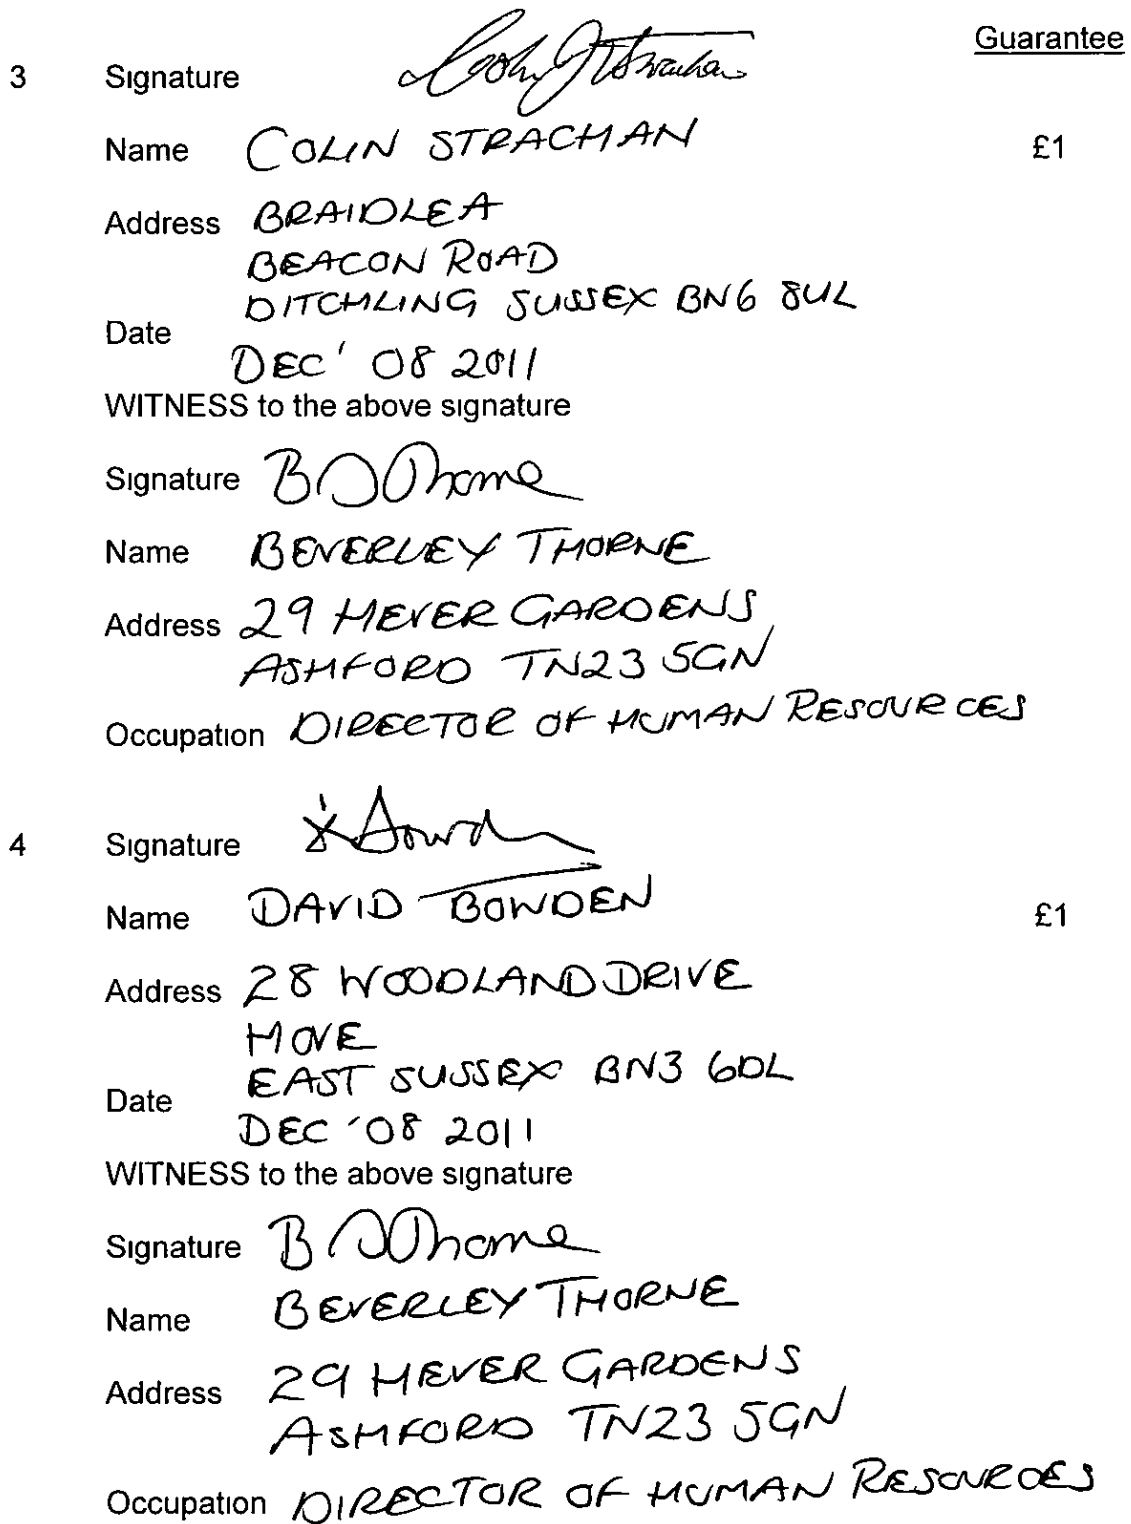 Guarantee
3 Signature Colin J Strachan
Name COLIN STRACHAN £1
Address BRAIDLEA
BEACON ROAD
DITCHLING SUSSEX BN6 8UL
Date
DEC' 08 2011
WITNESS to the above signature
Signature B Thorne
Name BEVERLEY THORNE
Address 29 HEVER GARDENS
ASHFORD TN23 5GN
Occupation DIRECTOR OF HUMAN RESOURCES
4 Signature
Name DAVID BOWDEN £1
Address 28 WOODLAND DRIVE
HOVE
EAST SUSSEX BN3 6DL
Date
DEC '08 2011
WITNESS to the above signature
Signature B Thorne
Name BEVERLEY THORNE
Address 29 HEVER GARDENS
ASHFORD TN23 5GN
Occupation DIRECTOR OF HUMAN RESOURCES